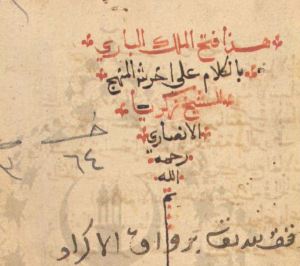 هذا فتح الملك الباري
بالكلام على اخر شرح المنهج
للشيخ زكريا
الانصاري
رحمه
الله
م
٦٤
وقف برواق الاكراد